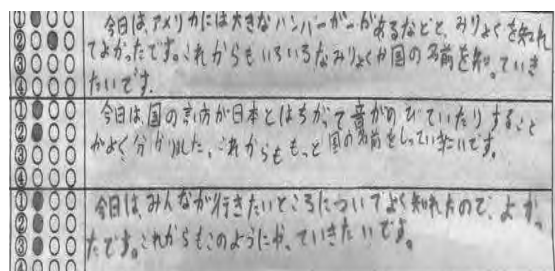 ① 今日は、アメリカには大きなハンバーガーがあるなどと、みりょくを知れ
② てよかったです。これからもいろいろなみりょくや国の名前を知っていき
③ たいです。
④
① 今日は、国の言い方が日本とはちがって音がのびていたりすること
② がよく分かりました。これからももっと国の名前をしっていきたいです。
③
④
① 今日は、みんなが行きたいところについてよく知れたので、よかっ
② たです。これからもこのように
③ ていきたいです。
④